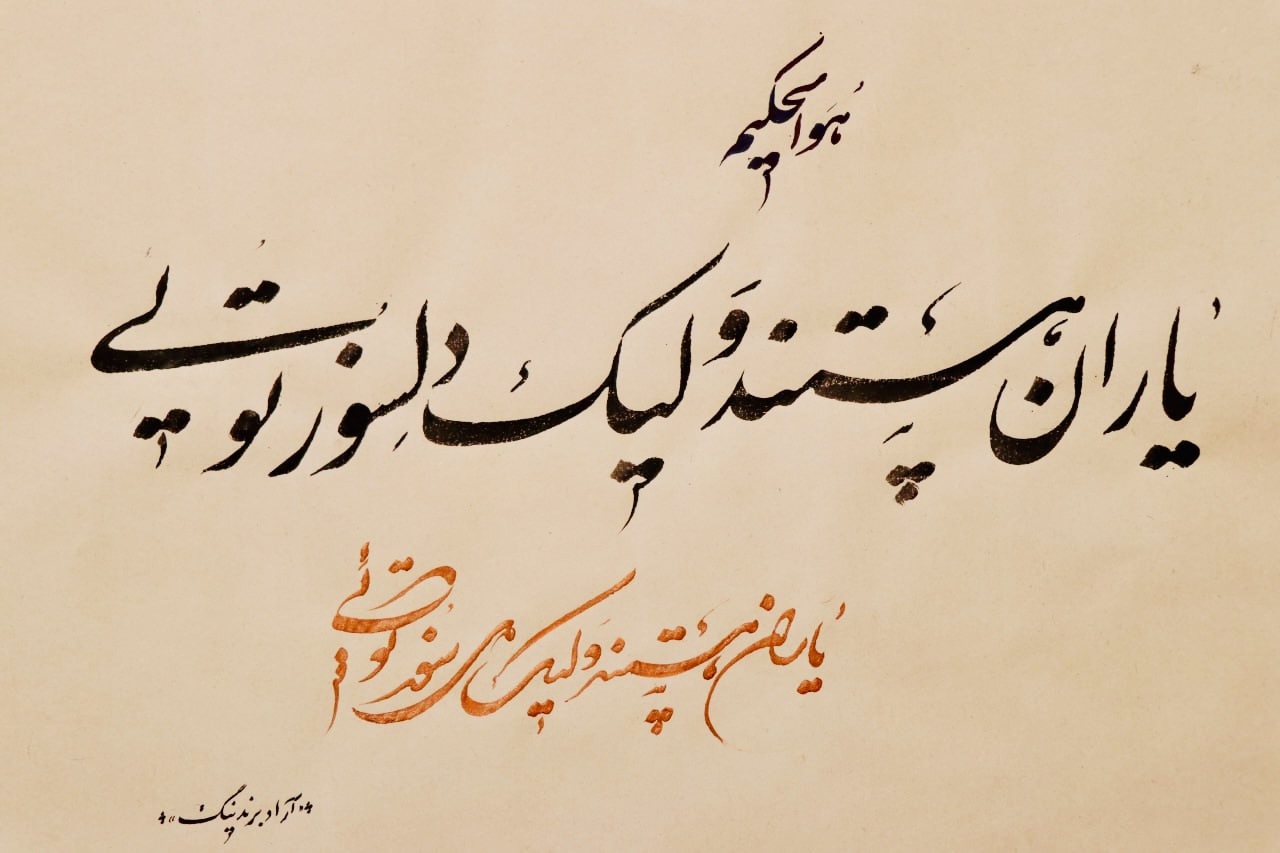 هوالحکیم
یاران هستند ولیک دلسوز تویی
یاران هستند ولیک تویی
«آزاد برندینگ»